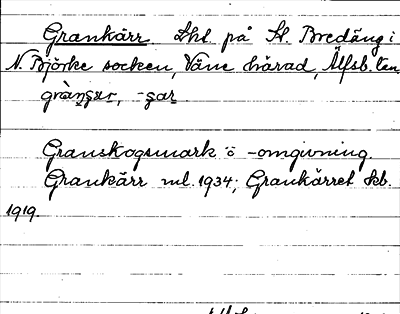 Grankärr Lhl. på St. Bredäng i
N. Björke socken, Väne härad, Älfsb. län.
gràŋçar, -çar
Granskogsmark o -omgivning.
Grankärr ml. 1934; Grankärret kb.
1919.